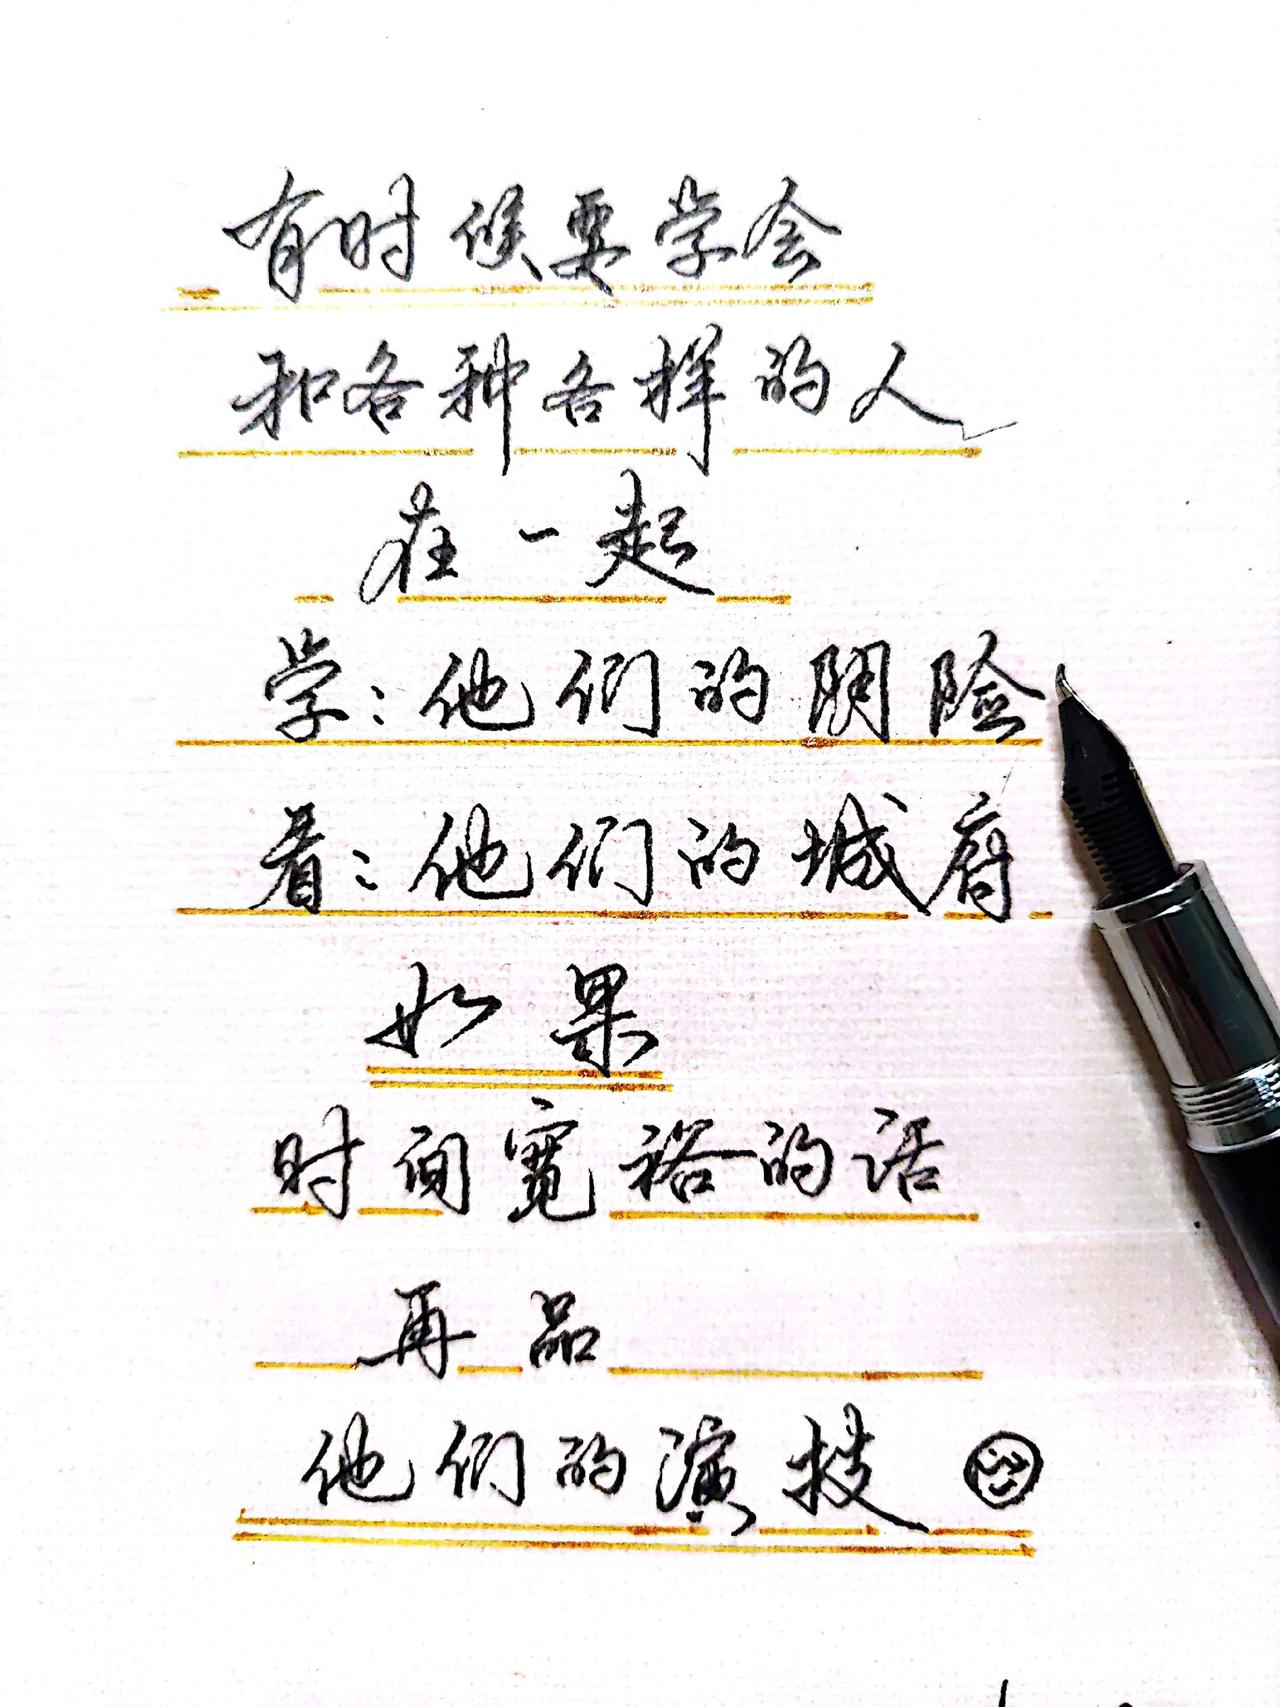 有时候要学会
和各种各样的人
在一起
学:他们的阴险
看:他们的城府
如果
时间宽裕的话
再品
他们的演技